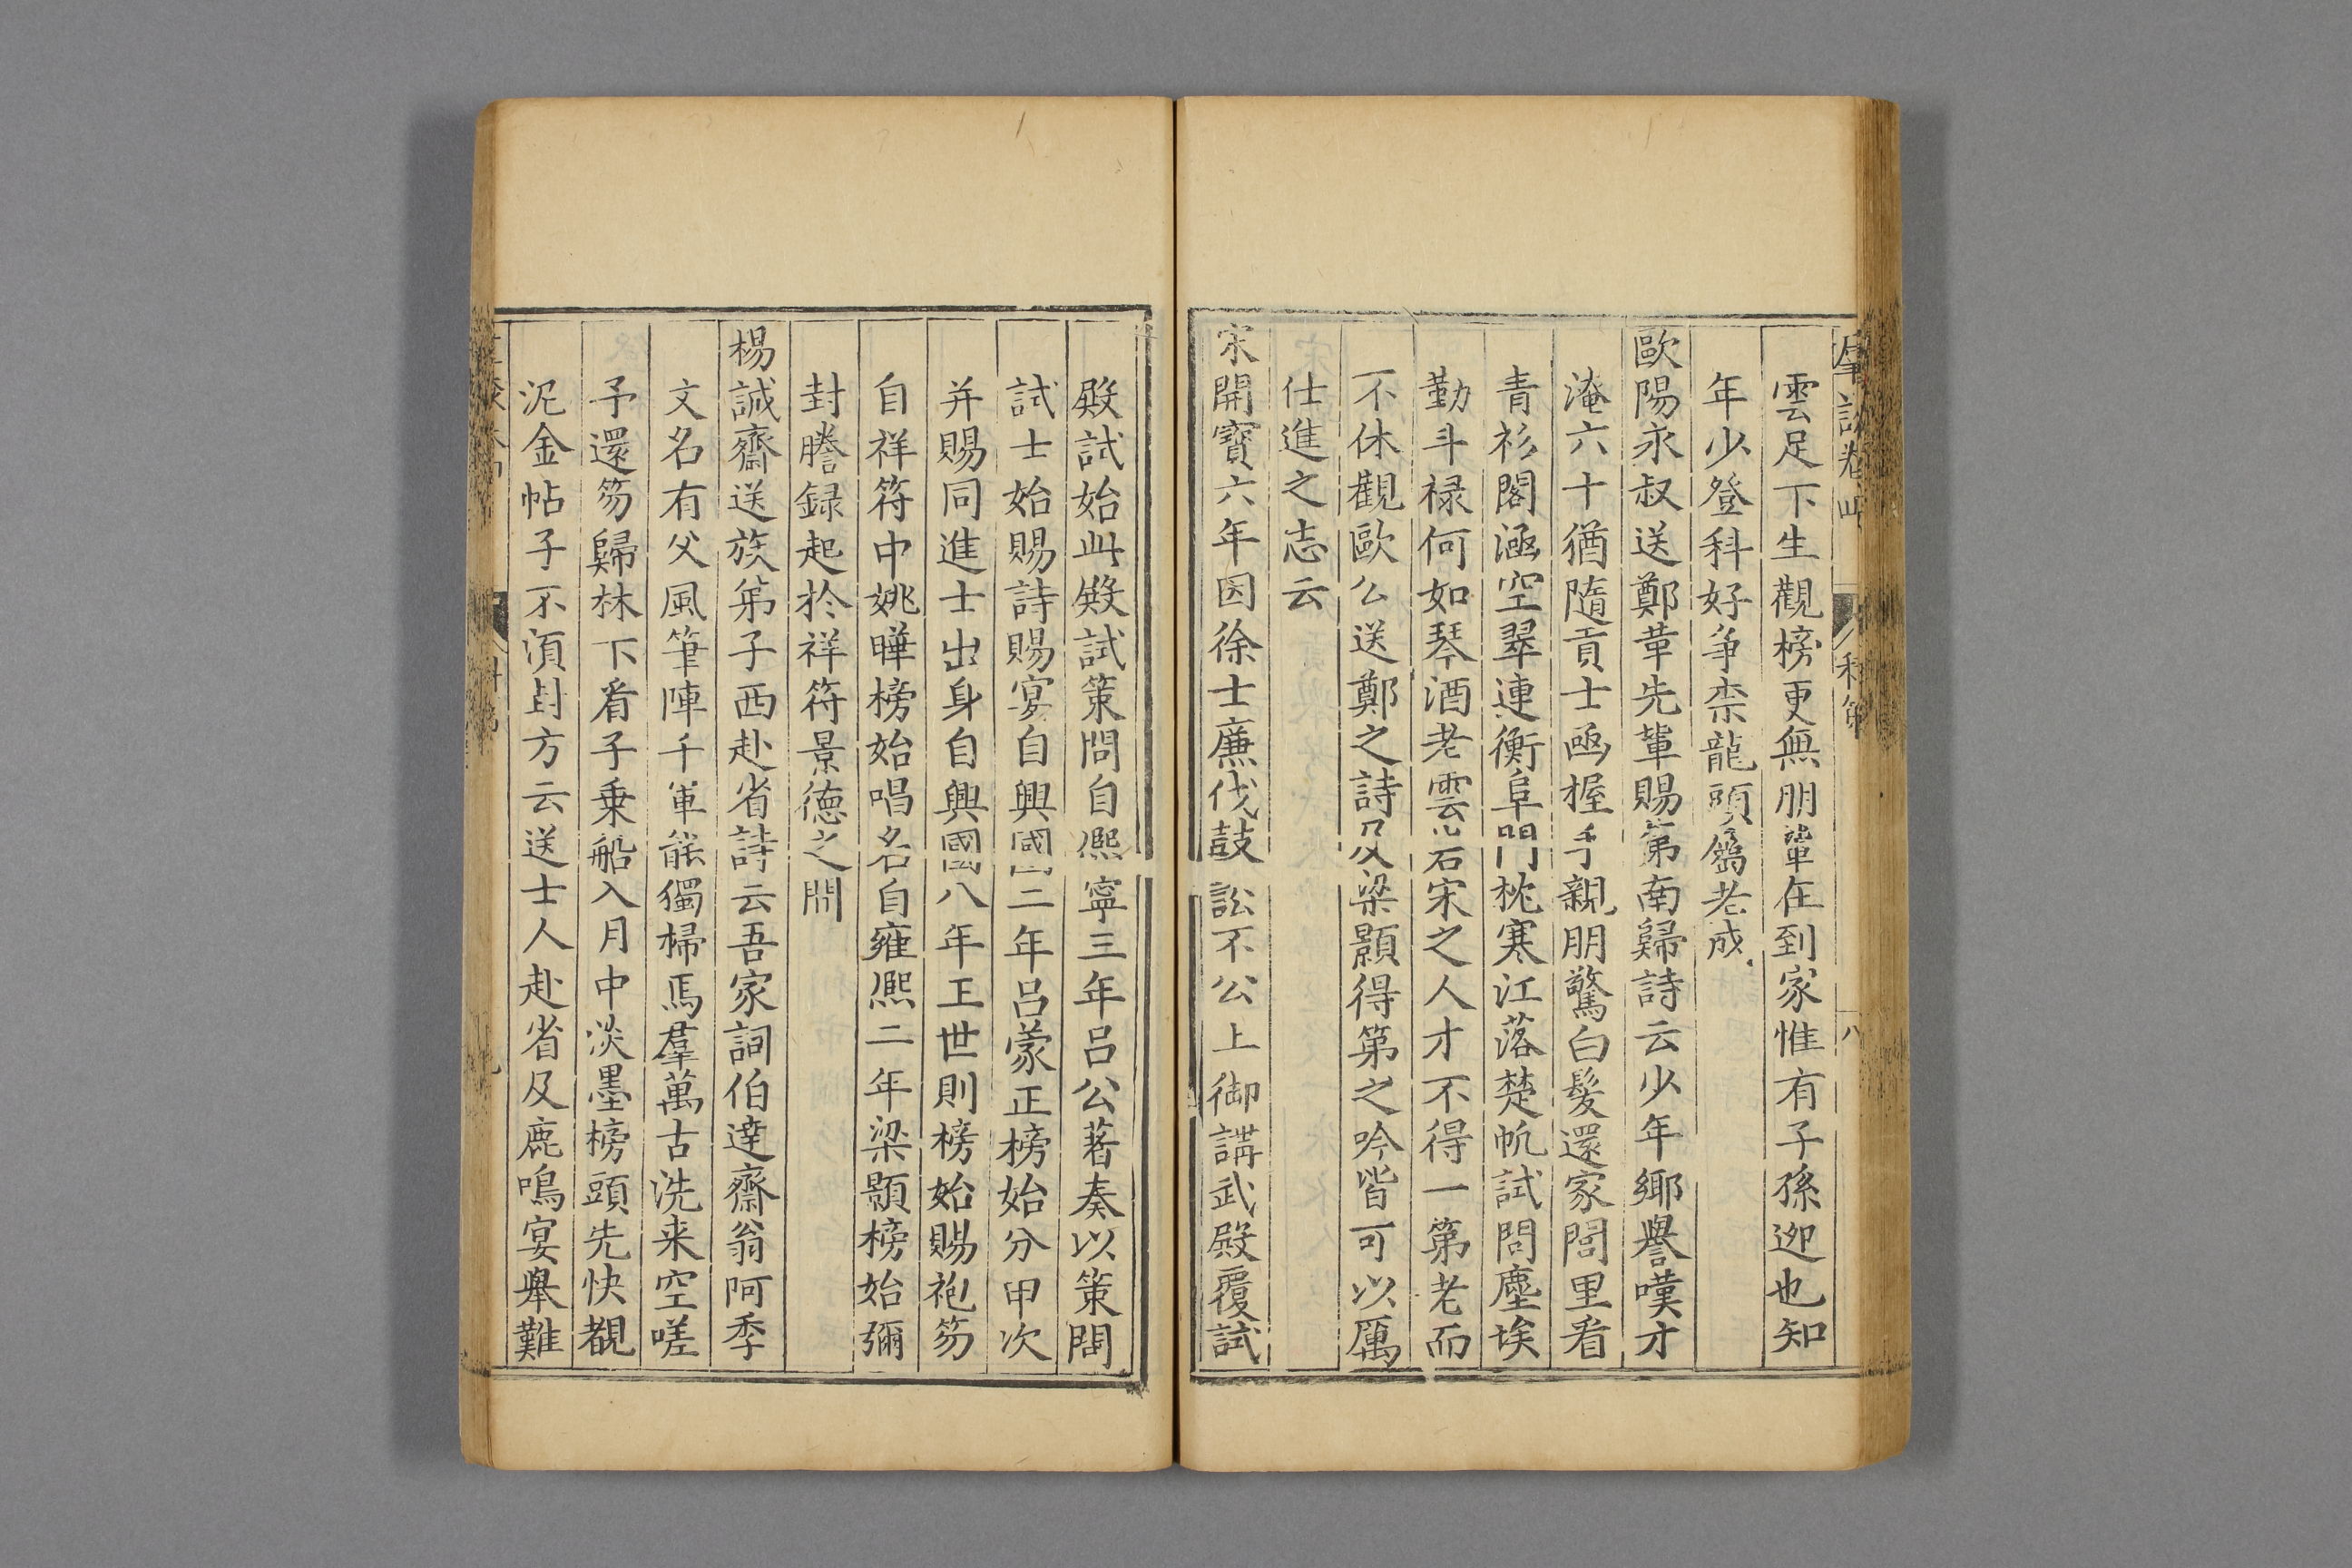 雲足下生觀榜更無朋輩在到家惟有子孫迎也知
年少登科好爭柰龍頭屬老成
歐陽永叔送鄭革先輩賜第南歸詩云少年鄉譽嘆才
淹六十猶隨貢士函握手親朋驚白髮還家閭里看
青衫閣涵空翠連衡阜門枕寒江落楚帆試問塵埃
勤斗禄何如琴酒老雲岩宋之人才不得一第老而
不休觀歐公送鄭之詩及梁顥得第之吟皆可以厲
仕進之志云
宋開寶六年因徐士廉伐鼓訟不公上御講武殿覆試
殿試始此殿試策問自熈寧三年吕公著奏以策問
試士始賜詩賜宴自興國二年吕蒙正榜始分甲次
并賜同進士出身自興國八年王世則榜始賜袍笏
自祥符中姚曄榜始唱名自雍熈二年梁顥榜始彌
封謄録起於祥符景德之間
楊誠齋送族弟子西赴省詩云吾家詞伯達齋翁阿季
文名有父風筆陣千軍能獨掃馬羣萬古洗来空嗟
予還笏歸林下看子乗船入月中淡墨榜頭先快覩
泥金帖子不須封方云送士人赴省及鹿鳴宴舉難